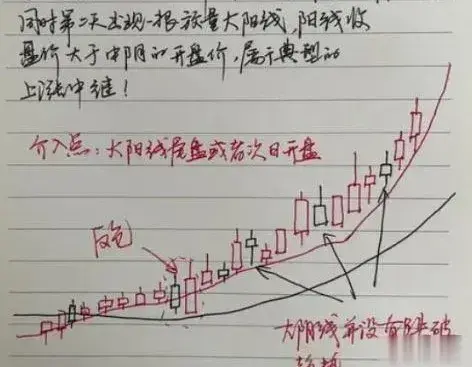 同时第二天出现一根放量大阳线，阳线收
盘价大于中阴的开盘价，属于典型的
上涨中继！
介入点：大阳线尾盘或者次日开盘
反包
大阴线并没有跌破
趋势